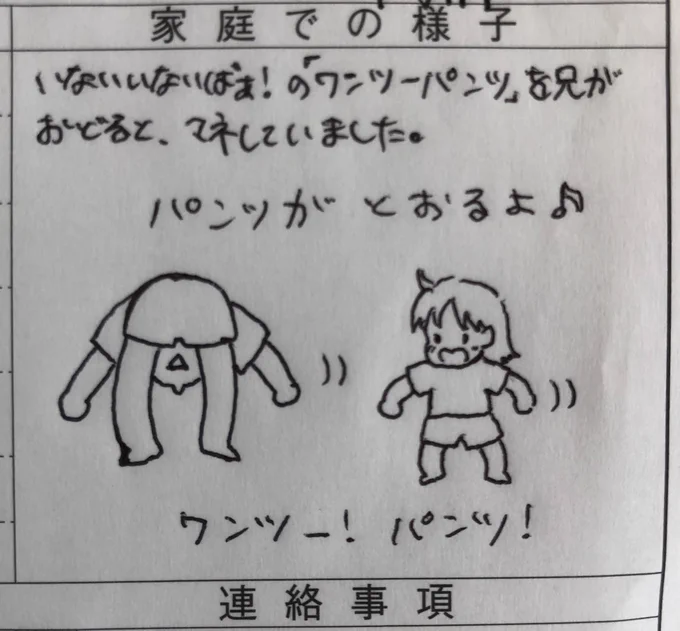 家庭での様子
いないいないばぁ！の「ワンツーパンツ」を兄が
おどると、マネしていました。
パンツが とおるよ♪
ワンツー！ パンツ！
連絡事項